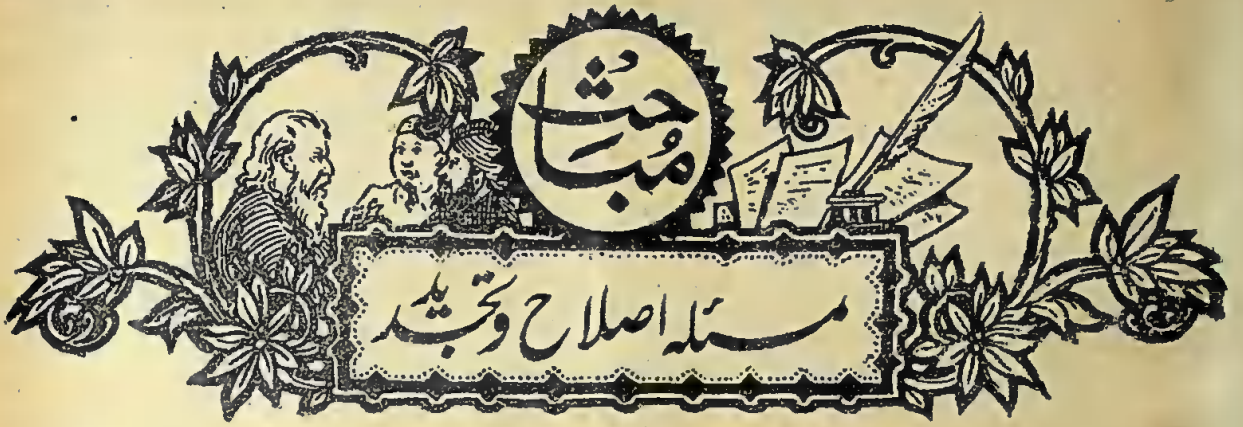 مُباحثُ
مسئلہ اصلاح وتجدید